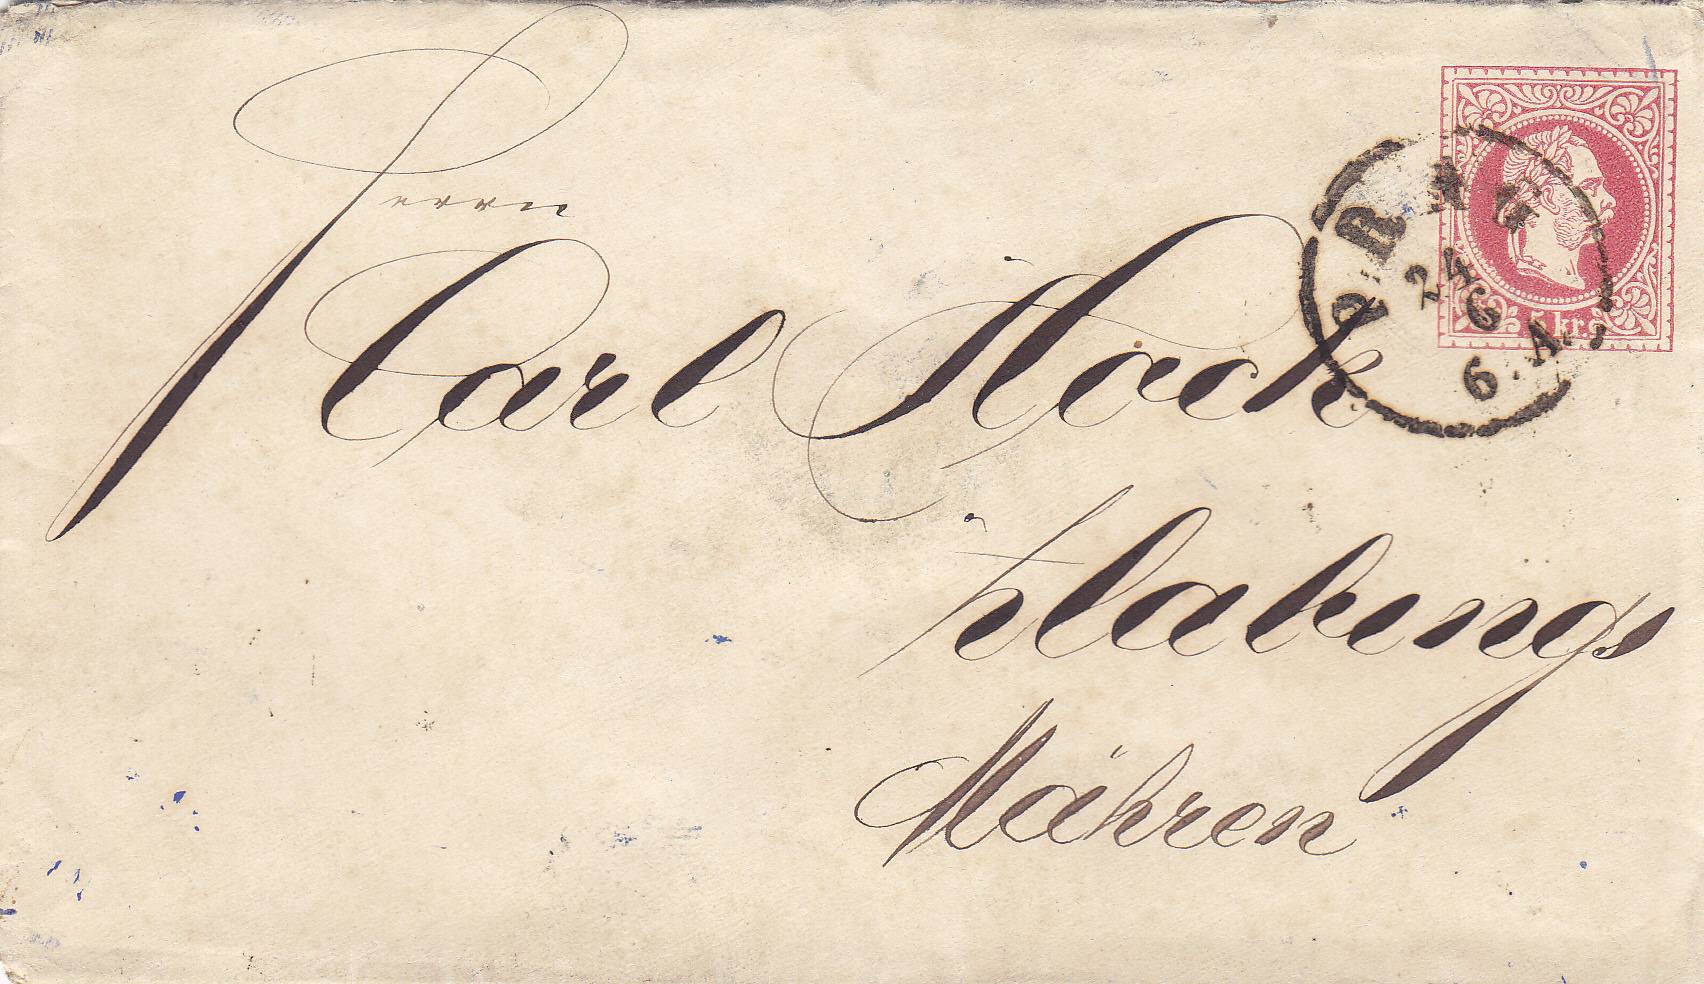 5 kr.
PRAG
24
6
6.A.
Herrn
Carl
Zlabings
Mähren